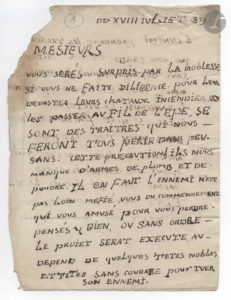 DU XVIII IUILIET 89
MESIEURS
VOUS SERÉS SURPRIS PAR LA NOBLESSE
SI VOUS NE FAITE DILIGENCE POUR LEUR
DEVASTER LEURS CHATAUX. INCENDIER ET
LES PASSER AU FIL DE L'EPÉ, SE
SONT DES TRAITRES QUI NOUS
FERONT TOUS PERIR DANS PEU
SANS CETTE PRECAUTION, ILS NOUS
MANQUE D'ARMES DE PLOMB ET DE
POUDRE. IL EN FAUT L'ENNEMI N'EST
PAS LOIN MEFIE VOUS DU COMMENDEMENT
QUI VOUS AMUSE POUR VOUS PERDRE.
PENSES Y BIEN, OU SANS ORDRE
LE PROIET SERAT EXECUTE AU
DEPEND DE QUELQUES TETES NOBLES
ETTETES SANS POUR TUER
SON ENNEMI.